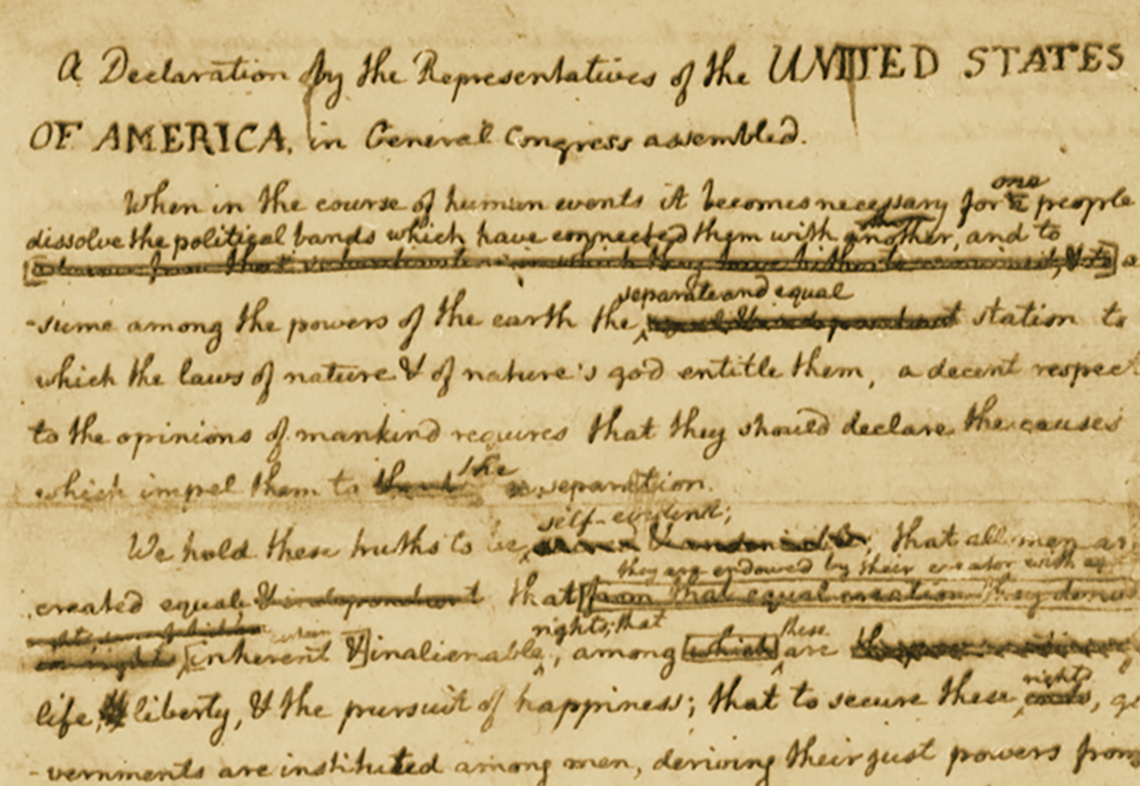 A Declaration by the Representatives of the UNITED STATES
OF AMERICA, in General Congress assembled.
one
When in the course of human events it becomes necessary for a people
dissolve the political bands which have connected them with another, and to
separate and equal
-sume among the powers of the earth the station to
which the laws of nature & of nature's god entitle them, a decent respect
to the opinions of mankind requires that they should declare the causes
the
which impel them to separation.
self-evident;
We hold these truths to be, that all men ar
they are endowed by their creator with
created equal & independent that from that equal creation they
certain
inherent & inalienable, among which are
rights; that
these
rights
life, liberty, & the pursuit of happiness; that to secure these ends, go
-vernments are instituted among men, deriving their just powers from